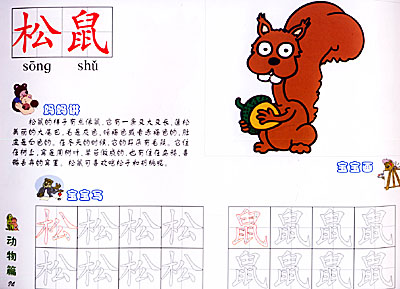 松鼠
sōng shǔ
妈妈讲
松鼠的样子有点像鼠，它有一条又大又长，蓬松
美丽的大尾巴，毛是灰色、暗褐色或者赤褐色的，肚
皮是白色的。在冬天的时候，它的耳朵有毛簇。它住
在树上，窝是用树叶、草苔做成的，也有住在乌鸦、喜
鹊丢弃的窝里。松鼠可喜欢吃松子和胡桃呢。
宝宝画
宝宝写
松松松松 鼠鼠鼠鼠
松松松松 鼠鼠鼠鼠
动物篇